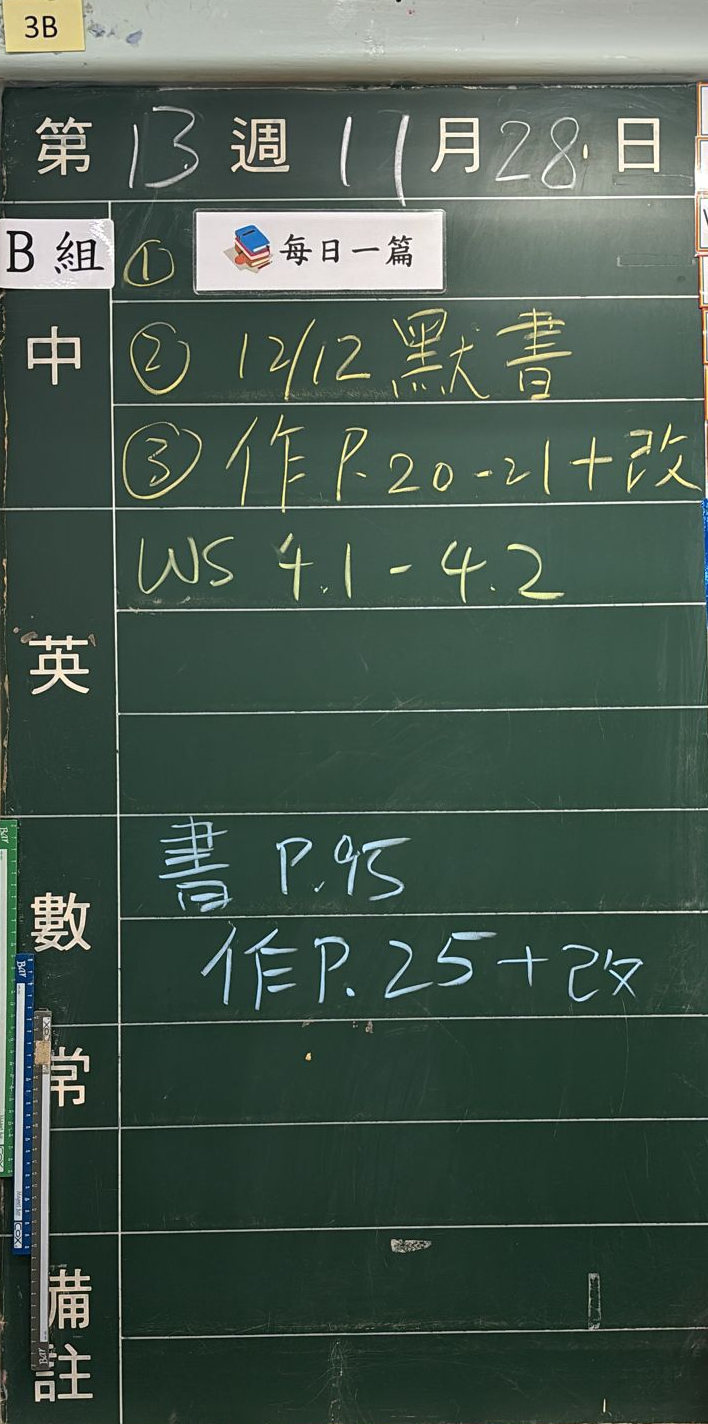 3B
第 13 週 11 月 28 日
B 組
中
① 每日一篇
② 12/12 默書
③ 作 P.20-21+改
英
WS 4.1-4.2
數
書 P.95
作 P.25+改
常
備註